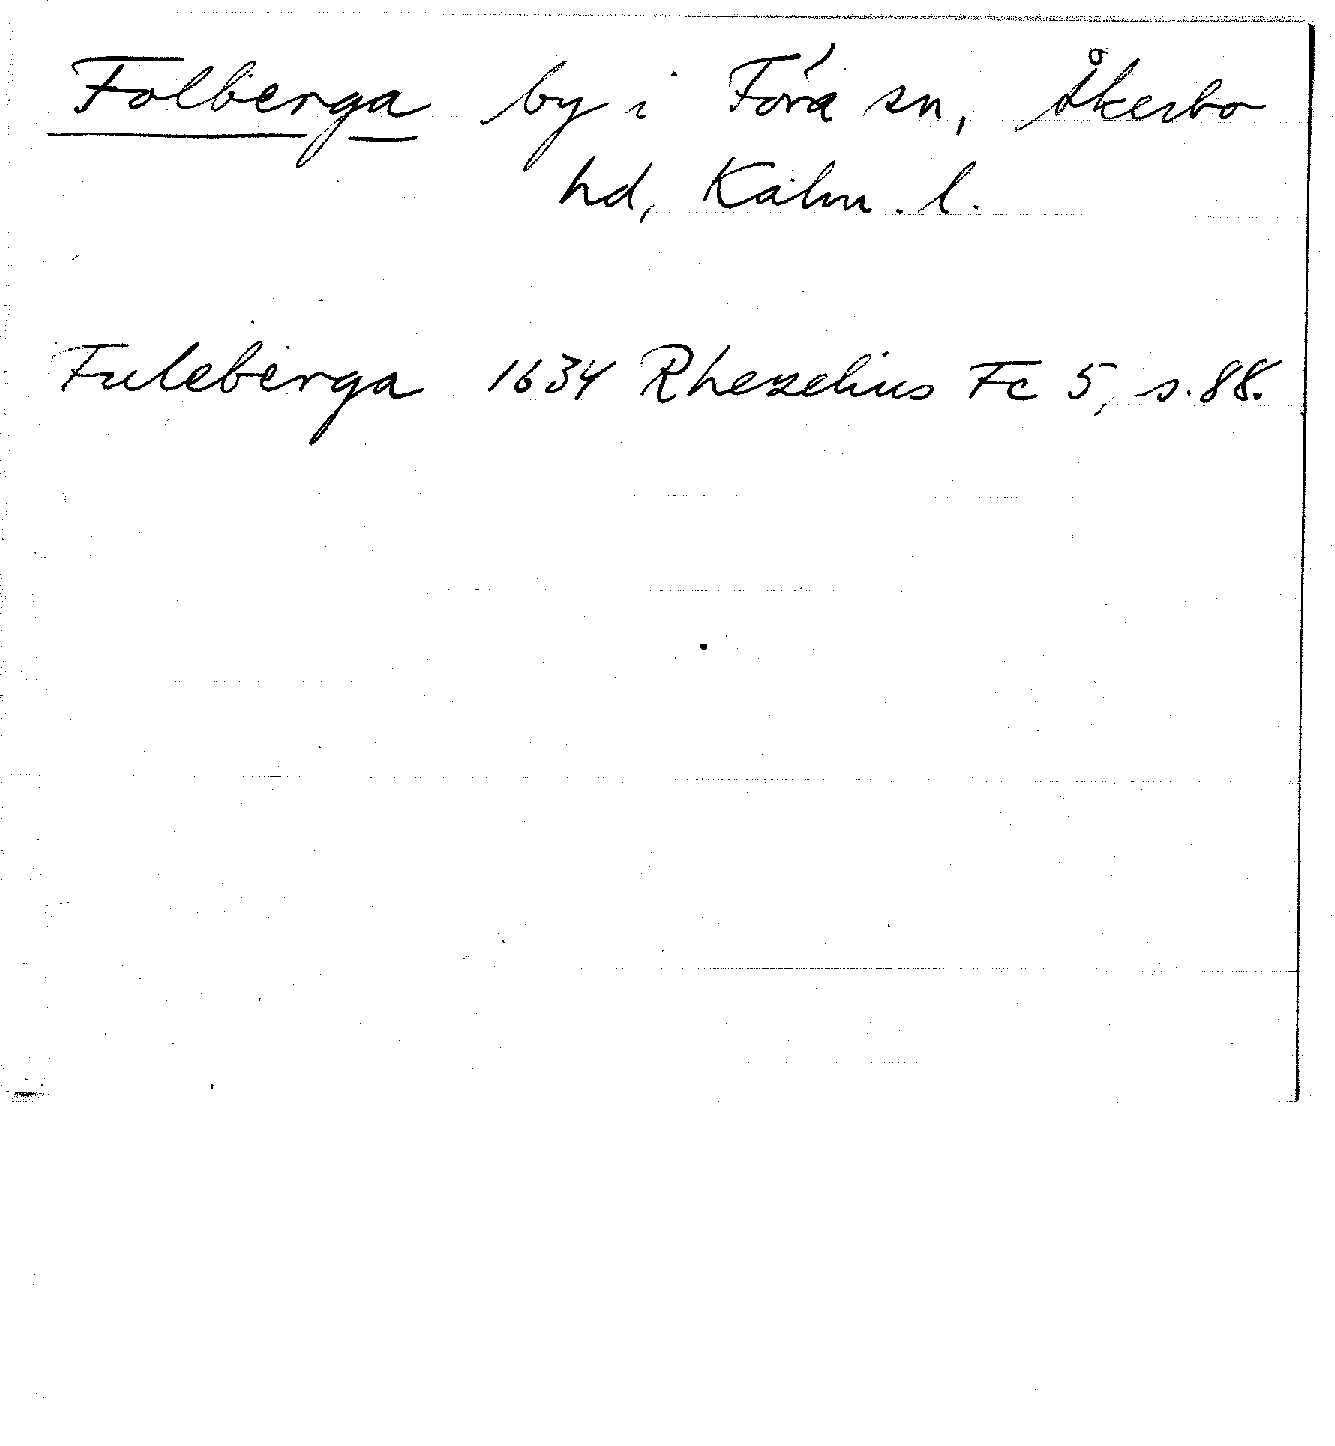 Folberga by i Föra sn, Åkerbo
hd, Kalm. l.
Fuleberga 1634 Rhezelius Fc 5, s. 88.